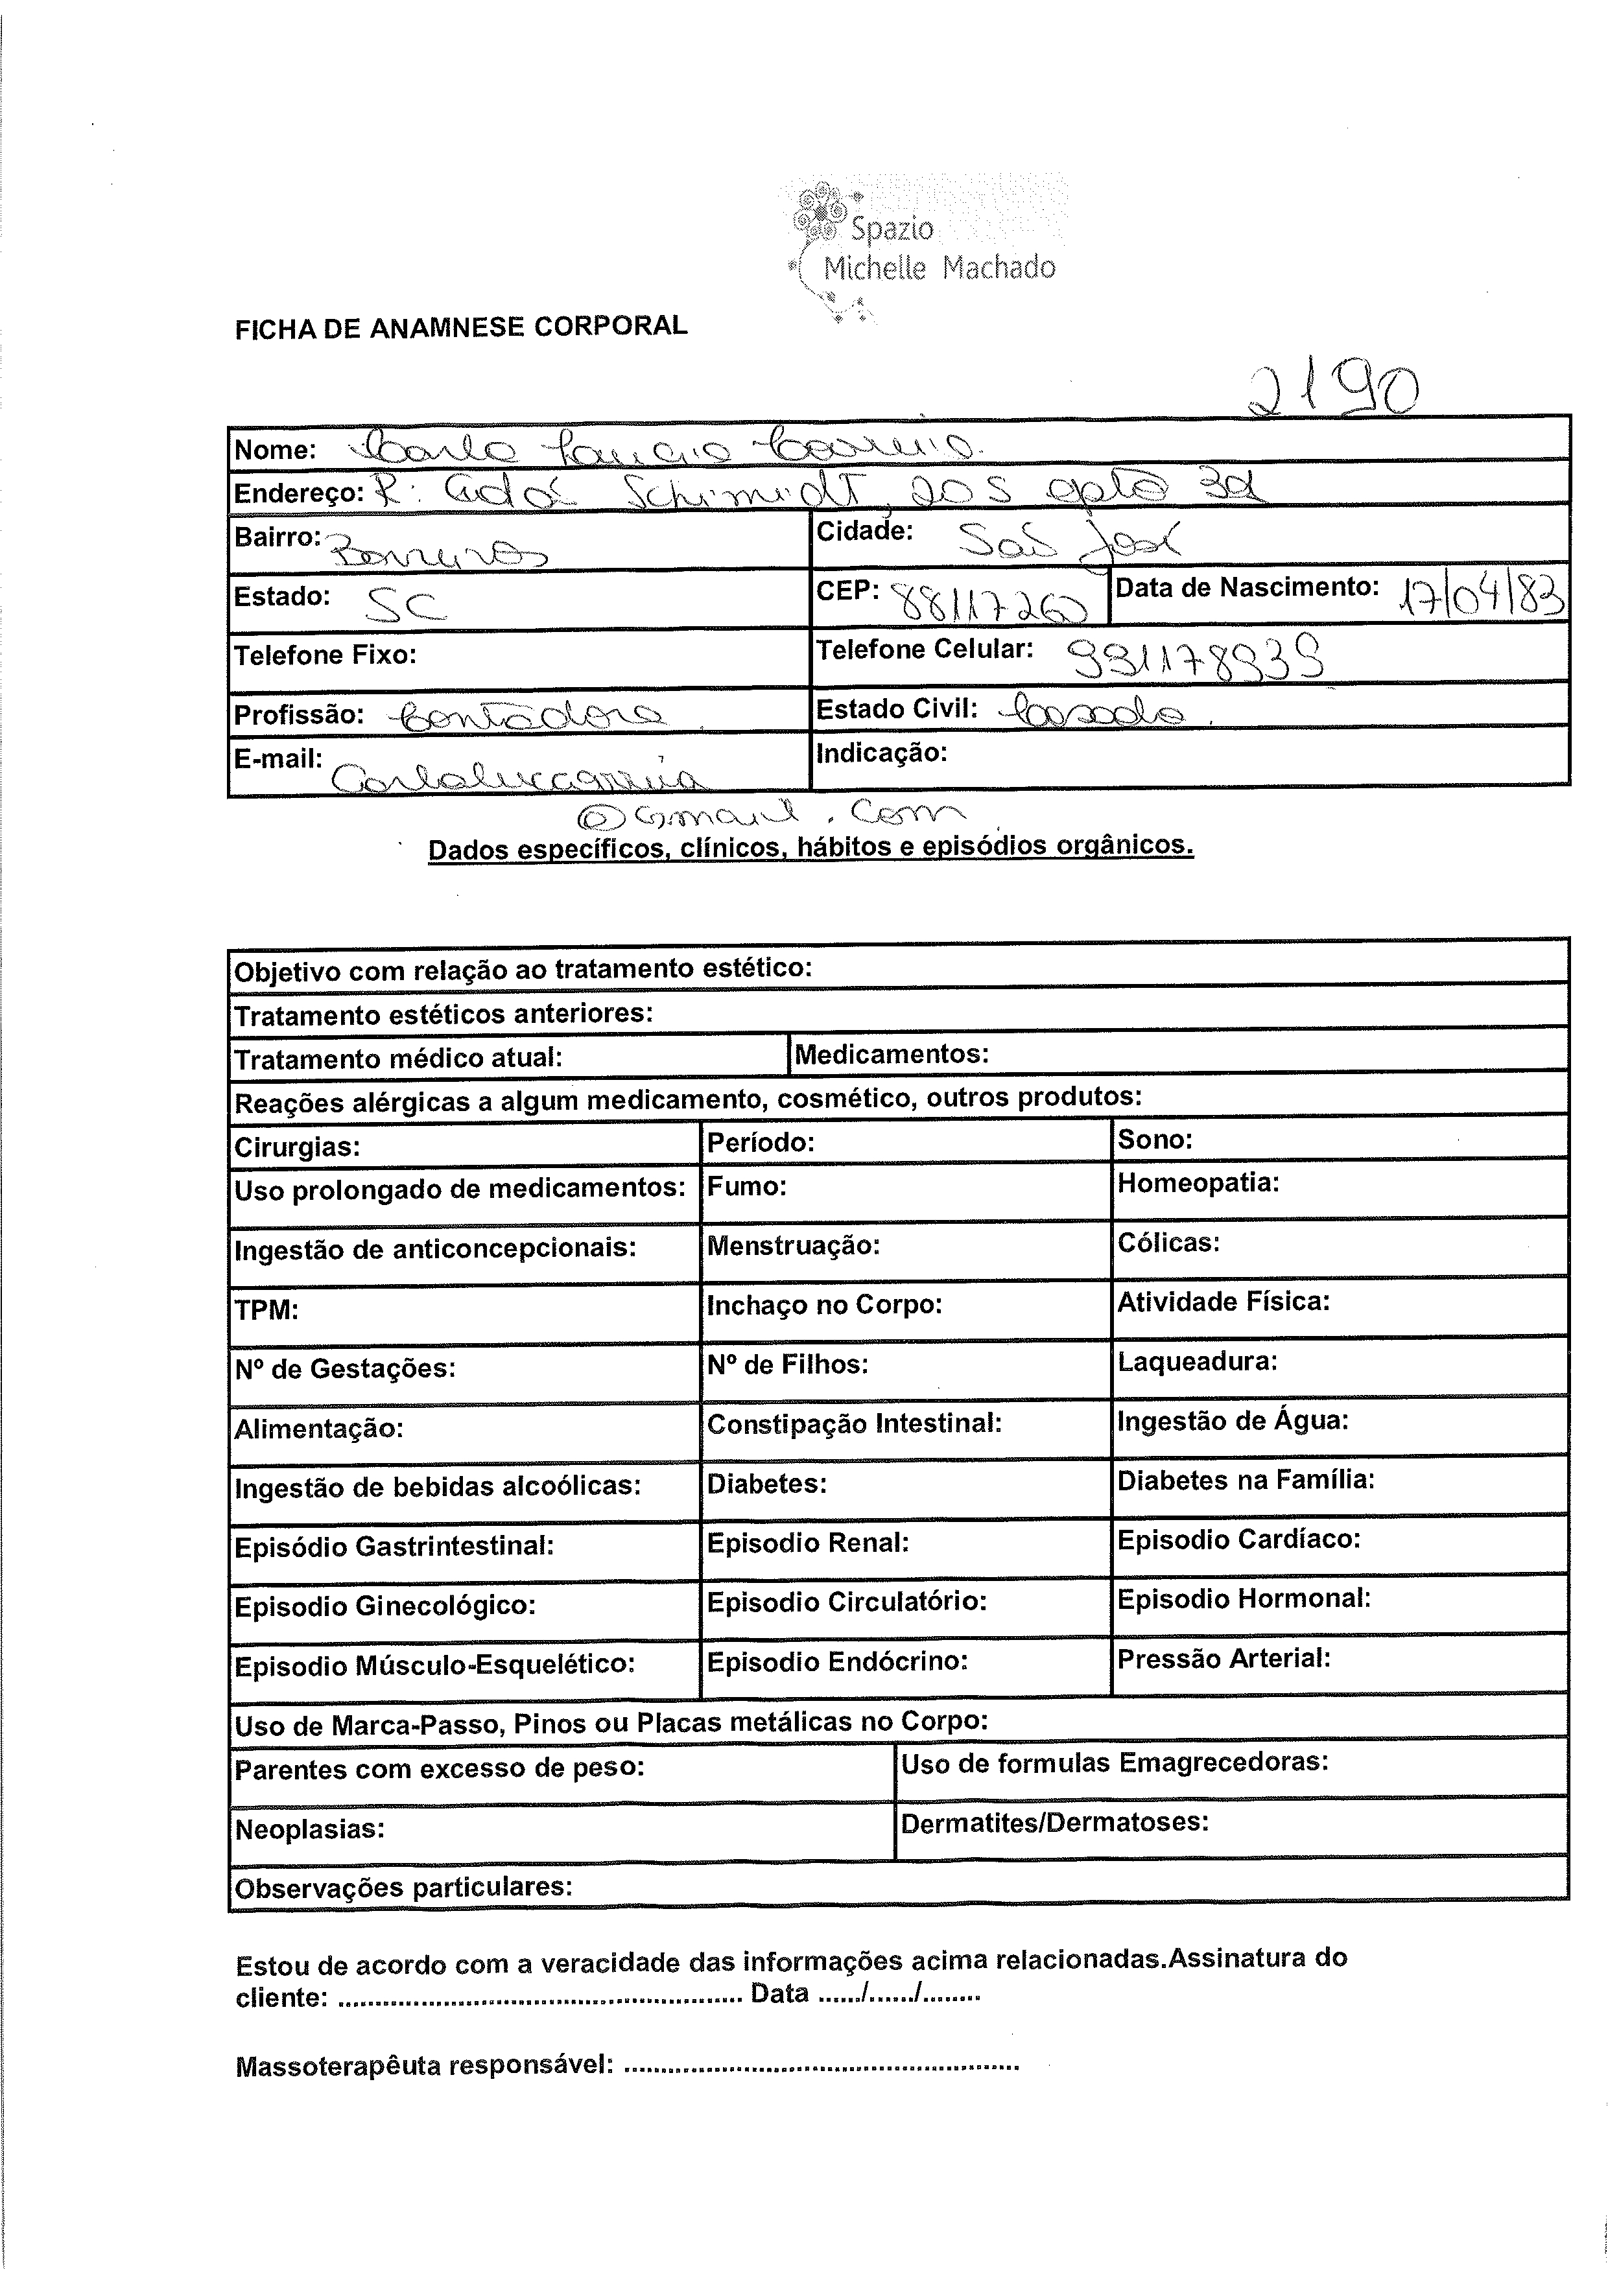 Spazio
Michelle Machado
FICHA DE ANAMNESE CORPORAL
2190
Nome: Carla
Endereço: R: Schimidt, 205 apto
Bairro: Barreiros Cidade: São José
Estado: SC CEP: 88117260 Data de Nascimento: 17/04/83
Telefone Fixo: Telefone Celular: 991178939
Profissão: Contadora. Estado Civil: Casada.
E-mail: Indicação:
@Gmail.com
Dados específicos, clínicos, hábitos e episódios orgânicos.
Objetivo com relação ao tratamento estético:
Tratamento estéticos anteriores:
Tratamento médico atual: Medicamentos:
Reações alérgicas a algum medicamento, cosmético, outros produtos:
Cirurgias: Período: Sono:
Uso prolongado de medicamentos: Fumo: Homeopatia:
Ingestão de anticoncepcionais: Menstruação: Cólicas:
TPM: Inchaço no Corpo: Atividade Física:
Nº de Gestações: Nº de Filhos: Laqueadura:
Alimentação: Constipação Intestinal: Ingestão de Água:
Ingestão de bebidas alcoólicas: Diabetes: Diabetes na Família:
Episódio Gastrintestinal: Episodio Renal: Episodio Cardíaco:
Episodio Ginecológico: Episodio Circulatório: Episodio Hormonal:
Episodio Músculo-Esquelético: Episodio Endócrino: Pressão Arterial:
Uso de Marca-Passo, Pinos ou Placas metálicas no Corpo:
Parentes com excesso de peso: Uso de formulas Emagrecedoras:
Neoplasias: Dermatites/Dermatoses:
Observações particulares:
Estou de acordo com a veracidade das informações acima relacionadas.Assinatura do
cliente: ...................................................... Data ....../....../........
Massoterapêuta responsável: .....................................................